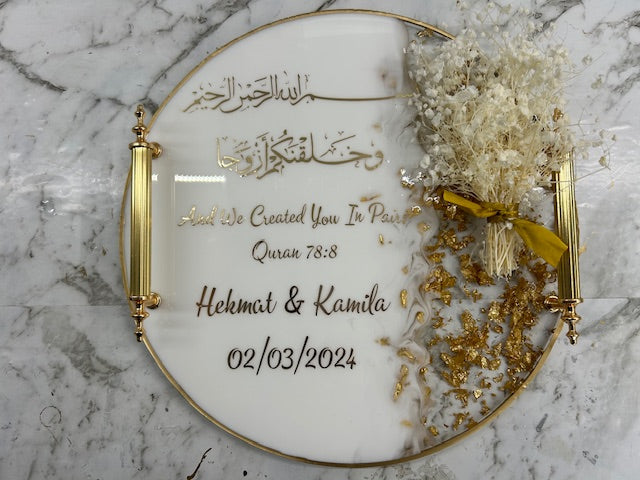 بسم الله الرحمن الرحيم
وَخَلَقْنَٰكُمْ أَزْوَٰجًا
And We Created You In Pairs
Quran 78:8
Hekmat & Kamila
02/03/2024